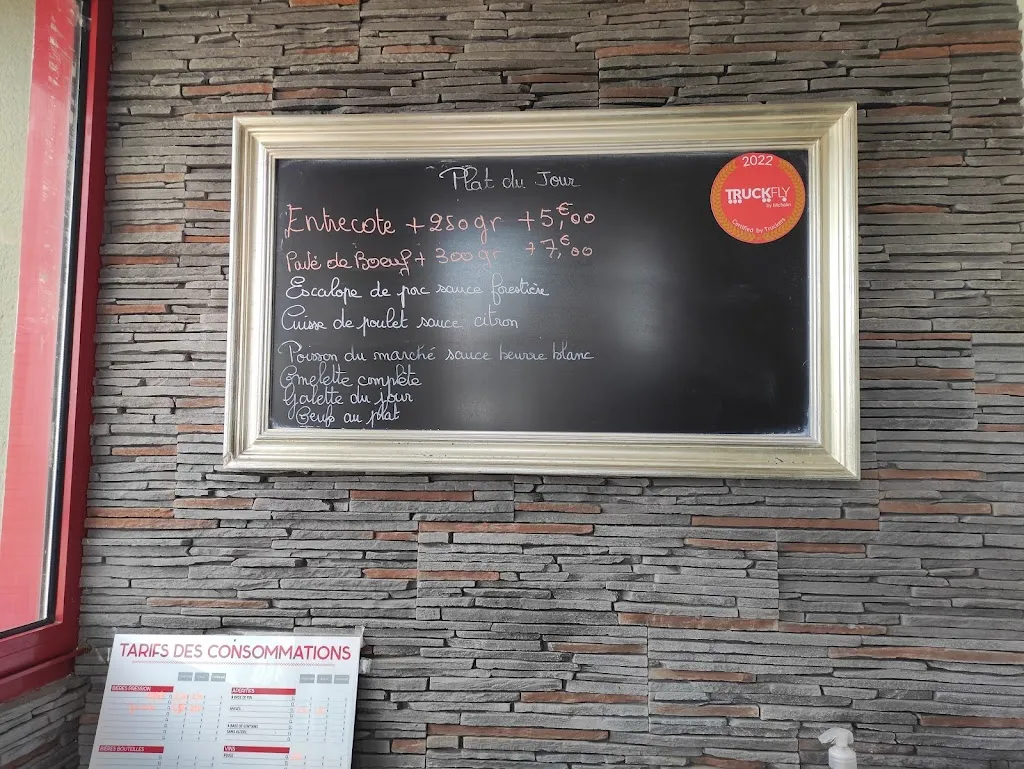 Plat du Jour
Entrecote + 250gr + 5,€00
Pavé de Boeuf + 300gr + 7,€00
Escalope de porc sauce forestière
Cuisse de poulet sauce citron
Poisson du marché sauce beurre blanc
Omelette complète
Galette du jour
Oeufs au plat
2022
TRUCKFLY
by Michelin
Certified by Truckers
TARIFS DES CONSOMMATIONS
BIÈRES PRESSION
APÉRITIFS
BIÈRES BOUTEILLES
VINS